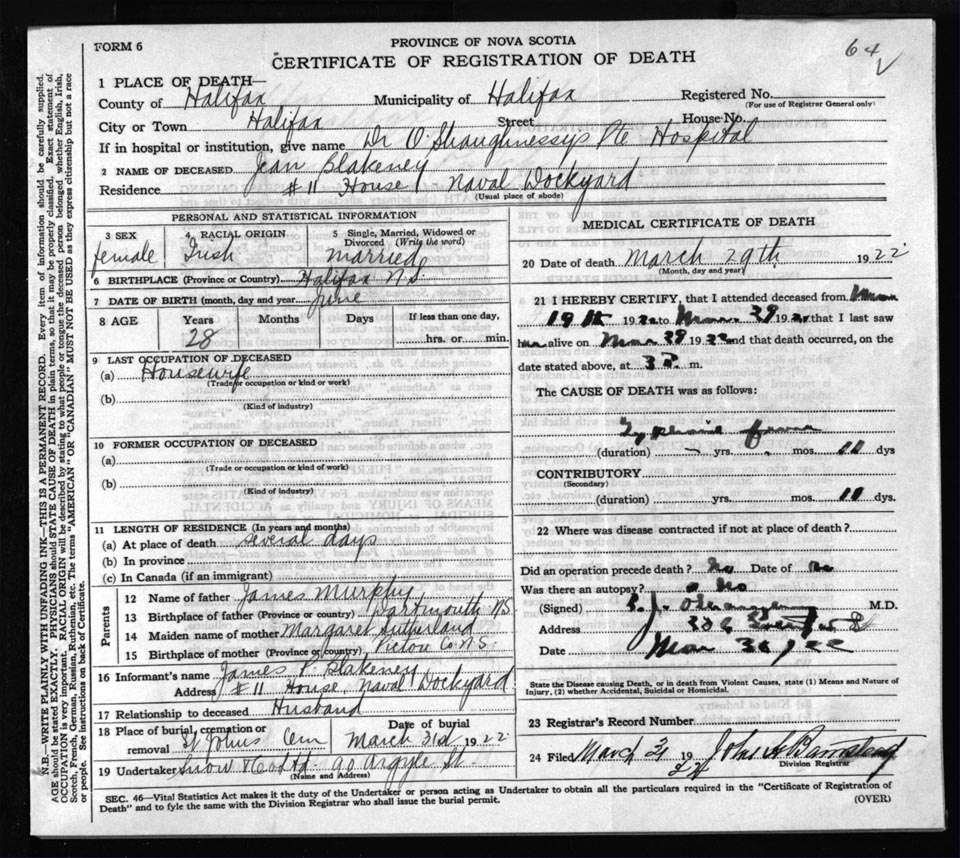 FORM 6
PROVINCE OF NOVA SCOTIA
CERTIFICATE OF REGISTRATION OF DEATH
64
N.B.—WRITE PLAINLY WITH UNFADING INK—THIS IS A PERMANENT RECORD. Every item of information should be carefully supplied.
AGE should be stated EXACTLY. PHYSICIANS should STATE CAUSE OF DEATH in plain terms, so that it may be properly classified. Exact statement of
OCCUPATION is very important. RACIAL ORIGIN will be described by stating to what people or tongue the deceased person belonged, whether English, Irish,
Scotch, French, German, Russian, Ruthenian, etc. The terms "AMERICAN" OR "CANADIAN" MUST NOT BE USED as they express citizenship but not a race
or people. See instructions on back of Certificate.
1 PLACE OF DEATH—
County of Halifax Municipality of Halifax Registered No.
(For use of Registrar General only)
City or Town Halifax Street House No.
If in hospital or institution, give name Dr O'Shaughnessy's Pte Hospital
2 NAME OF DECEASED Jean Blakeney
Residence #11 House Naval Dockyard
(Usual place of abode)
PERSONAL AND STATISTICAL INFORMATION
3 SEX 4 RACIAL ORIGIN 5 Single, Married, Widowed or
Divorced (Write the word)
female Irish married
6 BIRTHPLACE (Province or Country) Halifax N S
7 DATE OF BIRTH (month, day and year) June
8 AGE Years Months Days If less than one day,
28 hrs. or min.
9 LAST OCCUPATION OF DECEASED
(a) Housewife
(Trade or occupation or kind or work)
(b)
(Kind of industry)
10 FORMER OCCUPATION OF DECEASED
(a)
(Trade or occupation or kind of work)
(b)
(Kind of industry)
11 LENGTH OF RESIDENCE (In years and months)
(a) At place of death several days
(b) In province
(c) In Canada (if an immigrant)
Parents
12 Name of father James Murphy
13 Birthplace of father (Province or country) Dartmouth NS
14 Maiden name of mother Margaret Sutherland
15 Birthplace of mother (Province or country) Pictou Co N S.
16 Informant's name James P. Blakeney
Address #11 House, Naval Dockyard
17 Relationship to deceased Husband
18 Place of burial, cremation or Date of burial
removal St Johns Cem March 31st 1922
19 Undertaker Snow & Co Ltd 90 Argyle St.
(Name and Address)
MEDICAL CERTIFICATE OF DEATH
20 Date of death March 29th 1922
(Month, day and year)
21 I HEREBY CERTIFY, that I attended deceased from
19 192 to 29 192 that I last saw
alive on 29 1922 and that death occurred, on the
date stated above, at m.
The CAUSE OF DEATH was as follows:
(duration) yrs. mos. 11 dys
CONTRIBUTORY
(Secondary)
(duration) yrs. mos. 11 dys.
22 Where was disease contracted if not at place of death?
Did an operation precede death? No Date of
Was there an autopsy? No
(Signed) M.D.
Address
Date Mar 30/22
State the Disease causing Death, or in death from Violent Causes, state (1) Means and Nature of
Injury, (2) whether Accidental, Suicidal or Homicidal.
23 Registrar's Record Number
24 Filed March 31 19 John A Barnstead
Division Registrar
SEC. 46—Vital Statistics Act makes it the duty of the Undertaker or person acting as Undertaker to obtain all the particulars required in the "Certificate of Registration of
Death" and to fyle the same with the Division Registrar who shall issue the burial permit.
(OVER)